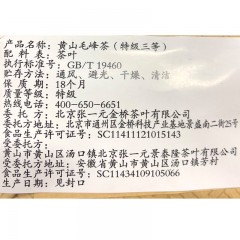 产品名称：黄山毛峰茶（特级三等）
配 料 表：茶叶
执行标准号：GB/T 19460
贮存方法：通风、避光、干燥、清洁
保 质 期：18个月
质量等级：特级
热线电话：400-650-6651
委 托 方：北京张一元金桥茶叶有限公司
委托方地址：北京市通州区金桥科技产业基地景盛南二街25号
食品生产许可证号：SC11411121015143
受委托方：
黄山市黄山区汤口镇北京张一元景泰隆茶叶有限公司
受委托方地址：安徽省黄山市黄山区汤口镇芳村
食品生产许可证号：SC11434109105066
生产日期：见封口